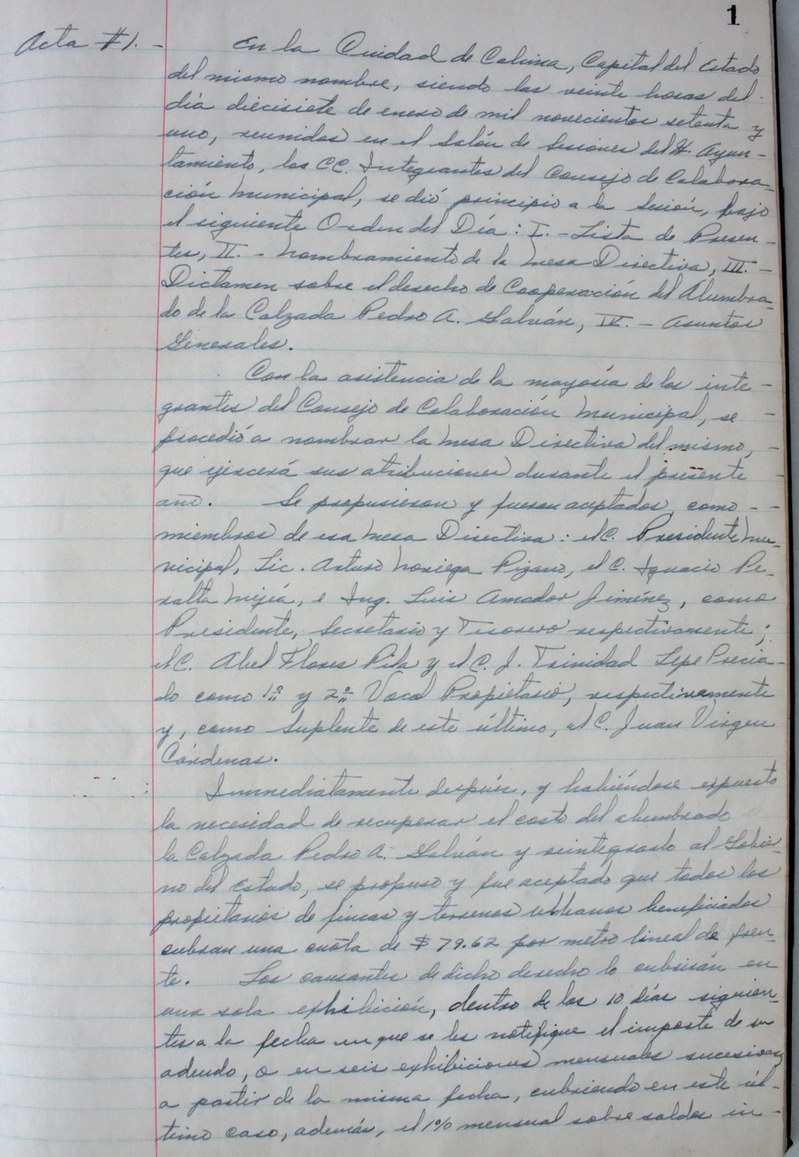 1
Acta #1.-
En la Ciudad de Colima, Capital del Estado
del mismo nombre, siendo las veinte horas del
día diecisiete de enero de mil novecientos setenta y
uno, reunidos en el Salón de Sesiones del H. Ayun-
tamiento, los CC. Integrantes del Consejo de Colabora-
ción Municipal, se dió principio a la Sesión, bajo
el siguiente Orden del Día: I.- Lista de Presen-
tes, II.- Nombramiento de la Mesa Directiva, III.-
Dictamen sobre el derecho de Cooperación del Alumbra-
do de la Calzada Pedro A. Galván, IV.- Asuntos
Generales.
Con la asistencia de la mayoría de los inte-
grantes del Consejo de Colaboración Municipal, se -
procedió a nombrar la Mesa Directiva del mismo, -
que ejercerá sus atribuciones durante el presente -
año. Se propusieron y fueron aceptados como - -
miembros de esa Mesa Directiva: el C. Presidente Mu-
nicipal, Lic. Arturo Noriega Pizano, el C. Ignacio Pe-
ralta Mejía, e Ing. Luis Amador Jiménez, como
Presidente, Secretario y Tesorero respectivamente;
el C. Abel Flores Pila y el C. J. Trinidad Lepe Precia-
do como 1º y 2º Vocal Propietario, respectivamente
y, como Suplente de este último, el C. Juan Virgen
Cárdenas.
Inmediatamente después, y habiéndose expuesto
la necesidad de recuperar el costo del alumbrado
la Calzada Pedro A. Galván y reintegrarlo al Gobier-
no del Estado, se propuso y fue aceptado que todos los
propietarios de fincas y terrenos urbanos beneficiados
cubran una cuota de $79.62 por metro lineal de fren-
te. Los causantes de dicho derecho lo cubrirán en
una sola exhibición, dentro de los 10 días siguien-
tes a la fecha en que se les notifique el importe de su
adeudo, o en seis exhibiciones mensuales sucesivas
a partir de la misma fecha, cubriendo en este úl-
timo caso, además, el 1% mensual sobre saldos in-